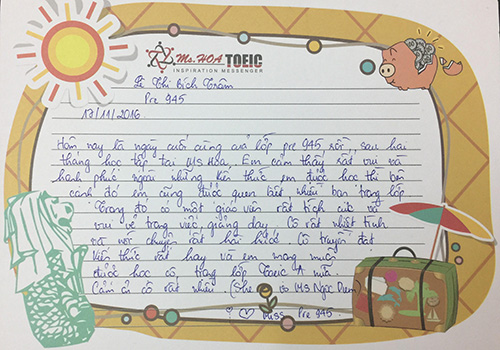 Ms. HOA TOEIC
INSPIRATION MESSENGER
Lê Thị Bích Trâm
Pre 945
17/11/2016
Hôm nay là ngày cuối cùng của lớp pre 945 rồi, sau hai
tháng học tập tại Ms Hoa, Em cảm thấy rất vui và
hạnh phúc ngoài những kiến thức em được học thì bên
cạnh đó em cũng được quen biết nhiều bạn trong lớp.
Trong đó có một giáo viên rất tích cực và
vui vẻ trong việc giảng dạy. Cô rất nhiệt tình
và nói chuyện rất hài hước. Cô truyền đạt
kiến thức rất hay và em mong muốn
được học cô trong lớp Toeic A nữa.
Cảm ơn cô rất nhiều. (She is Ms Ngoc Diem)
I ♡ Miss Pre 945.